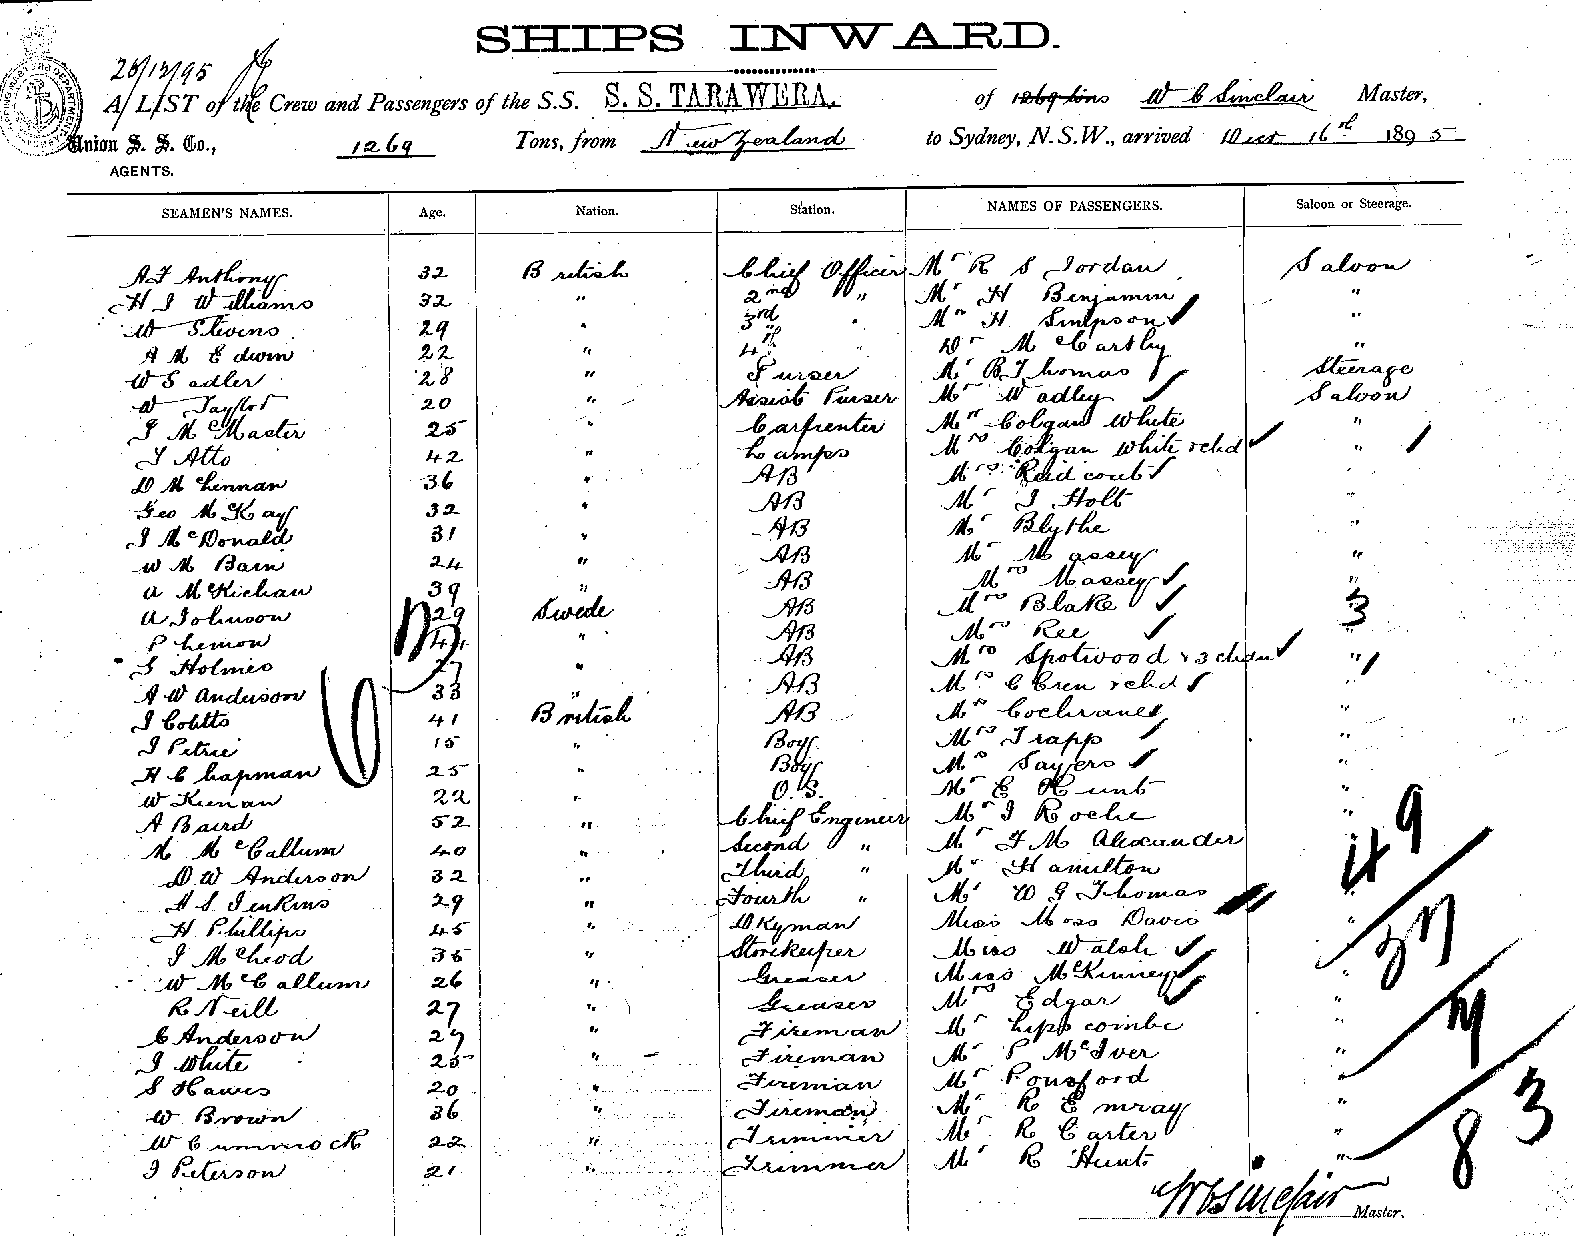 SHIPS INWARD.
25/12/95
A LIST of the Crew and Passengers of the S.S. S. S. TARAWERA. of 1269 tons W C Sinclair Master,
Union S. S. Co., 1269 Tons, from New Zealand to Sydney, N.S.W., arrived Decr 16th 1895
AGENTS.
SEAMEN'S NAMES. Age. Nation. Station. NAMES OF PASSENGERS. Saloon or Steerage.
A J Anthony 32 British Chief Officer Mr R S Jordan Saloon
H J Williams 32 " 2nd " Mr H Benjamin "
W Stevens 29 " 3rd " Mrs H Simpson "
A M Edwin 22 " 4th " Dr McCarthy "
W Sadler 28 " Purser Mr B Thomas Steerage
W Taylor 20 " Assist Purser Mr Wadley Saloon
J McMaster 25 " Carpenter Mr Colgan White "
J Atto 42 " Lamps Mrs Colgan White & chd "
D McLennan 36 " AB Mrs Reid "
Geo McKay 32 " AB Mr J Holt "
J McDonald 31 " AB Mr Blythe "
W M Bain 24 " AB Mr Massey "
A McKichan 39 " AB Mrs Massey "
A Johnson 29 Swede AB Mrs Blake 3
P Lemon " AB Mrs Ree "
S Holmes 27 " AB Mrs Spotwood & 3 chdn "
A W Anderson 33 " AB Mrs C Cren & chd "
J Coutts 41 British AB Mrs Cochrane "
J Petrie 15 " Boy Mrs Trapp "
H Chapman 25 " Boy Mrs Sayers "
W Kienan 22 " O.S. Mr E Hunt "
A Baird 52 " Chief Engineer Mr J Roche "
M McCallum 40 " Second " Mr F M Alexander 49
D W Anderson 32 " Third " Mr Hamilton
H S Jenkins 29 " Fourth " Mr W G Thomas "
H Phillips 45 " DKyman Miss Moss Davis " 37
J McLeod 35 " Storekeeper Miss Walsh
W McCallum 26 " Greaser Miss McKinney "
R Neill 27 " Greaser Mrs Edgar "
C Anderson 29 " Fireman Mr Lippscombe "
J White 25 " Fireman Mr P McIver "
S Hawes 20 " Fireman Mr Ponsford "
W Brown 36 " Fireman Mr R Emray "
W Cummock 22 " Trimmer Mr R Carter " 83
J Peterson 21 " Trimmer Mr R Hunt "
W C Sinclair Master.